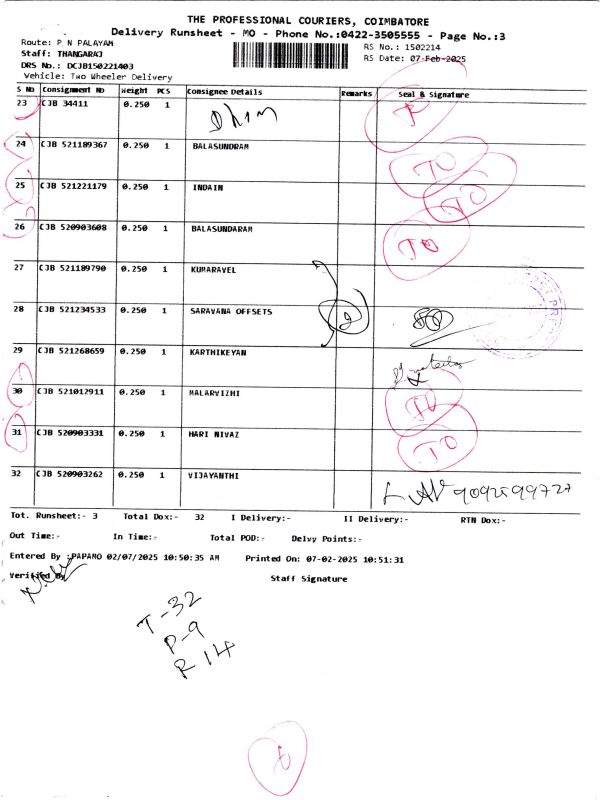 THE PROFESSIONAL COURIERS, COIMBATORE
Delivery Runsheet - MO - Phone No.:0422-3505555 - Page No.:3
Route: P N PALAYAM
RS No.: 1502214
Staff: THANGARAJ
RS Date: 07-Feb-2025
DRS No.: DCJB150221403
Vehicle: Two Wheeler Delivery
S No Consignment No Weight PCS Consignee Details Remarks Seal & Signature
23 CJB 34411 0.250 1
24 CJB 521189367 0.250 1 BALASUNDRAM TO
25 CJB 521221179 0.250 1 INDAIN TO
26 CJB 520903608 0.250 1 BALASUNDARAM TO
27 CJB 521189790 0.250 1 KUMARAVEL
28 CJB 521234533 0.250 1 SARAVANA OFFSETS 2
29 CJB 521268659 0.250 1 KARTHIKEYAN
30 CJB 521012911 0.250 1 MALARVIZHI TO
31 CJB 520903331 0.250 1 HARI NIVAZ TO
32 CJB 520903262 0.250 1 VIJAYANTHI 9092599727
Tot. Runsheet:- 3 Total Dox:- 32 I Delivery:- II Delivery:- RTN Dox:-
Out Time:- In Time:- Total POD:- Delvy Points:-
Entered By :PAPAMO 02/07/2025 10:50:35 AM Printed On: 07-02-2025 10:51:31
Verified By Staff Signature
T-32
P-9
R 14